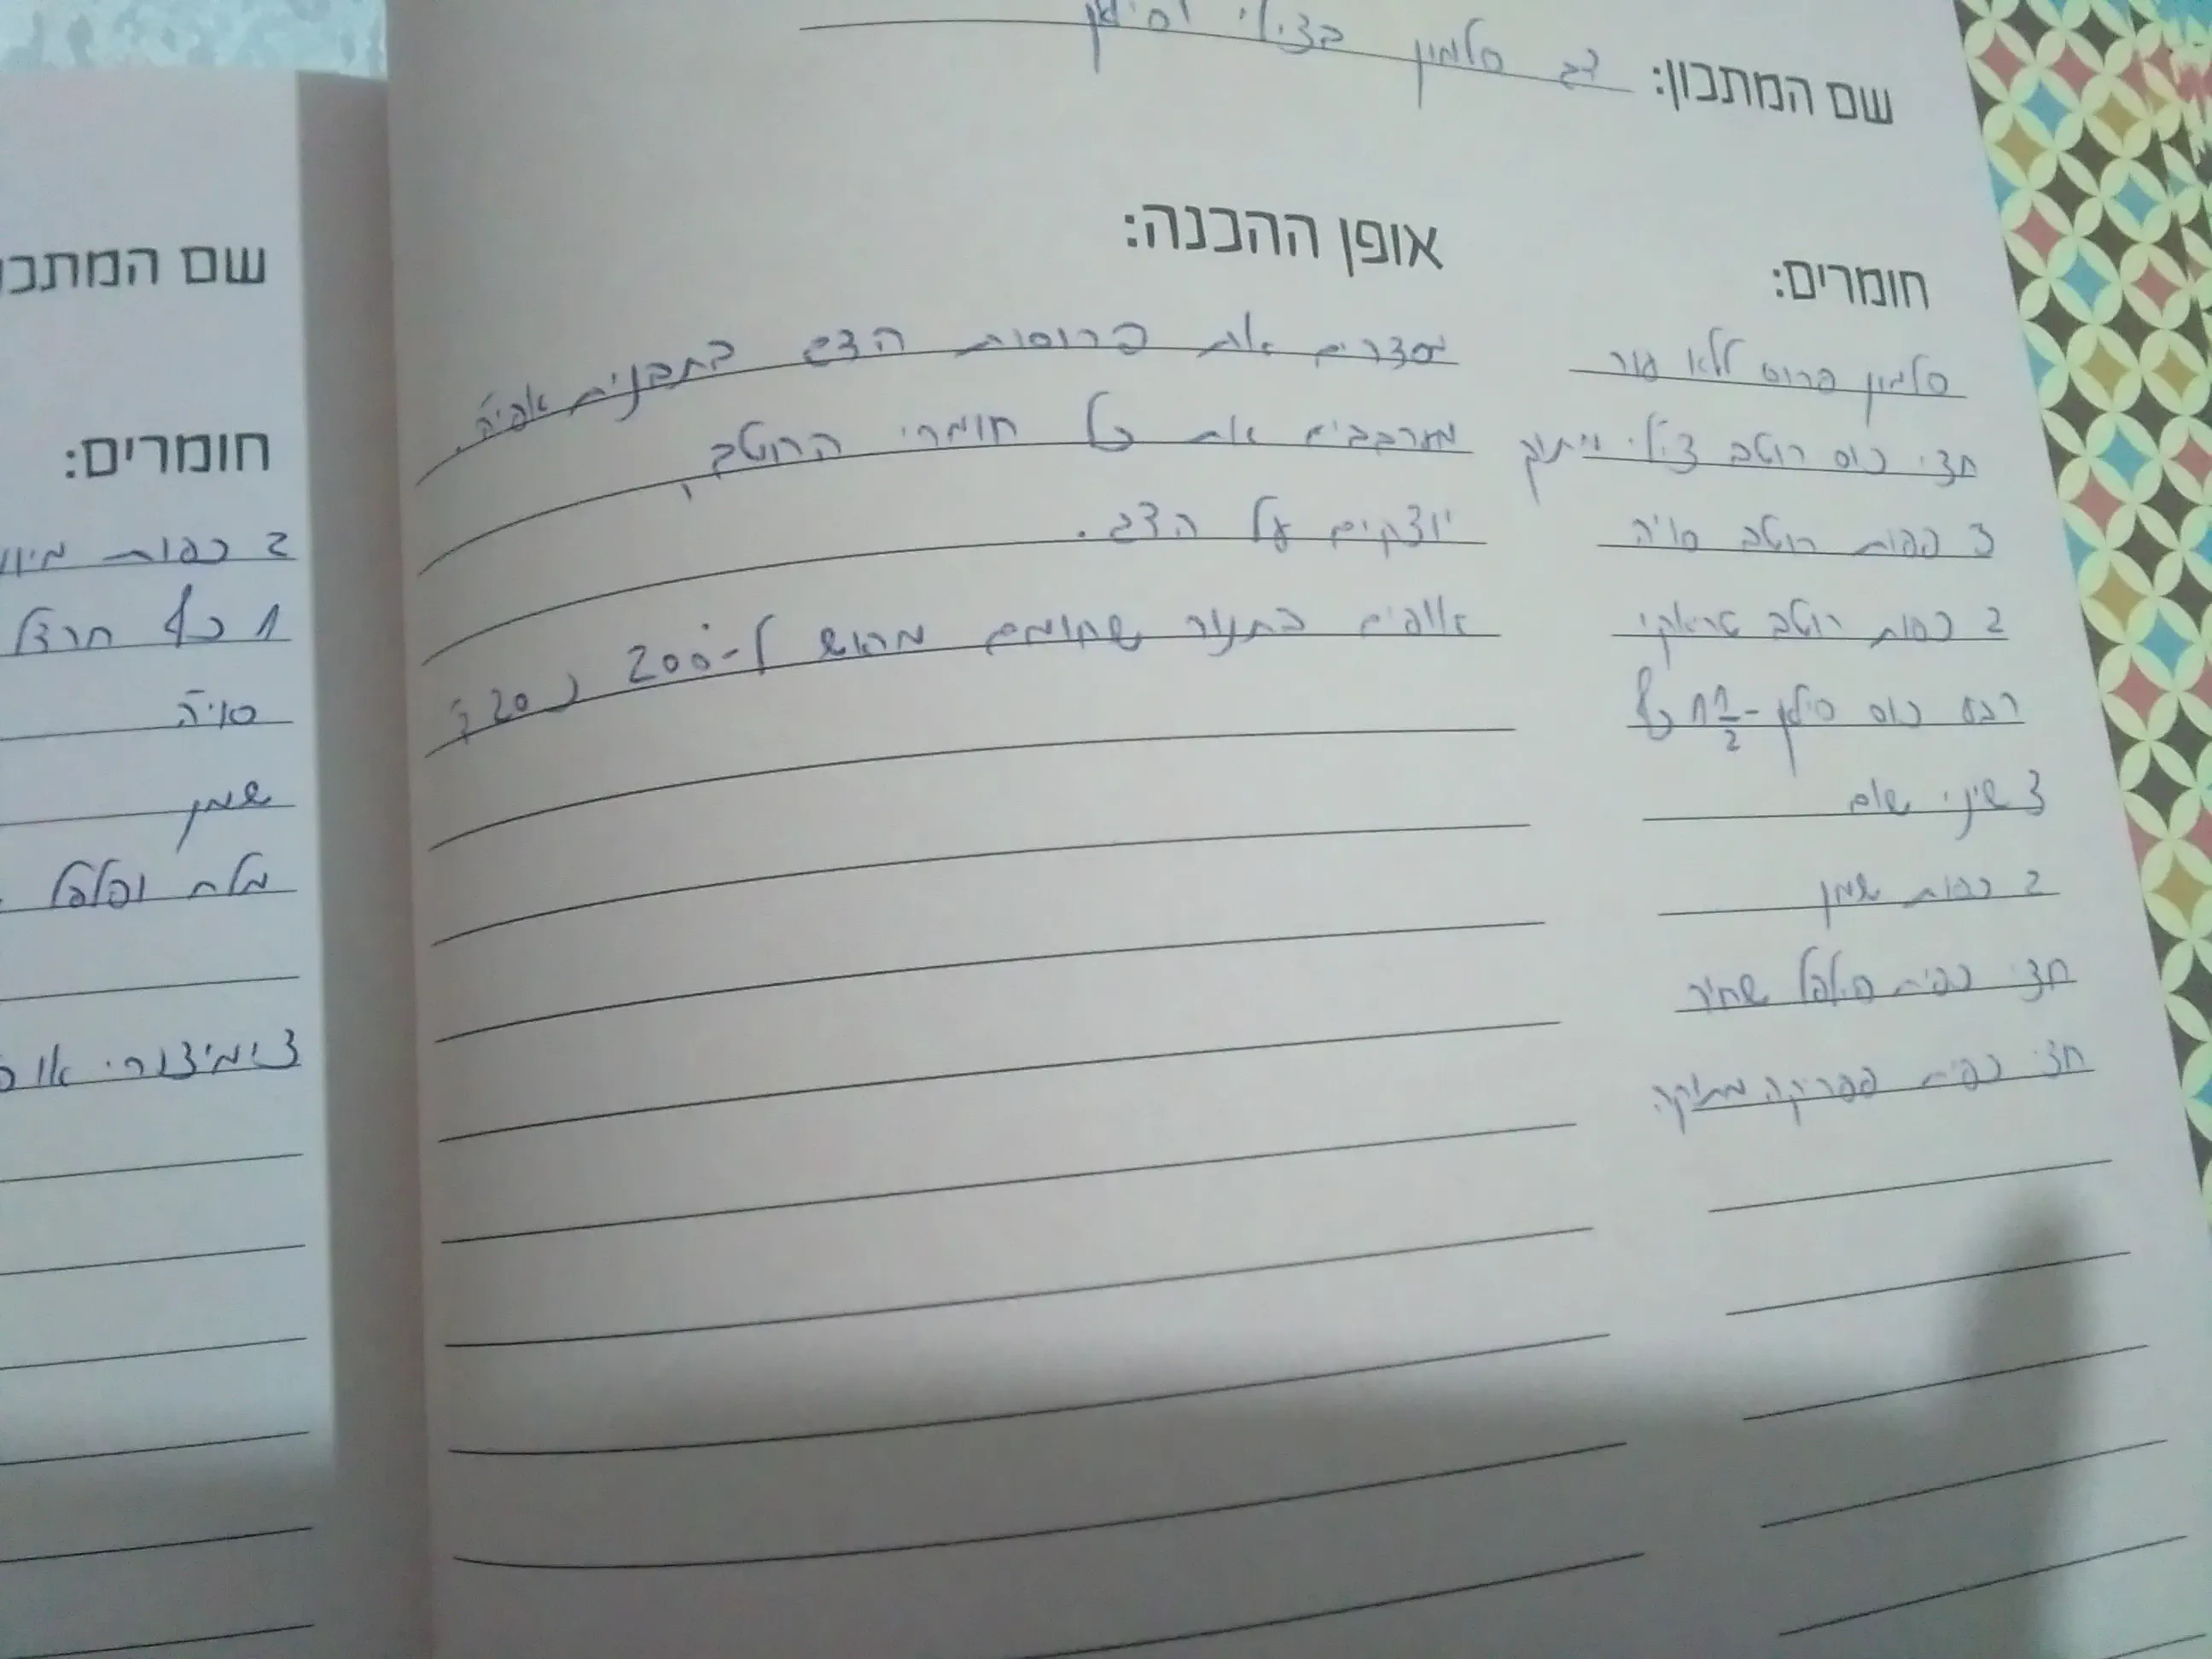 שם המתכון: דג סלמון בצ'ילי וסילאן
חומרים:
סלמון פרוס ללא עור
חצי כוס רוטב צ'ילי מתוק
3 כפות רוטב סויה
2 כפות רוטב טראקי
רבע כוס סילן - 1 1/2 כף
3 שיני שום
2 כפות שמן
חצי כפית פילפל שחור
חצי כפית פפריקה מתוקה
אופן ההכנה:
מסדרים את פרוסות הדג בתבנית אפיה.
מערבבים את כל חומרי הרוטב,
יוצקים על הדג.
אופים בתנור שחומם מראש ל-200° כ 20 ד'
שם המתכו
חומרים:
2 כפות מיונ
1 כף חרדל
סויה
שמן
מלח ופלפל
צ'ימיצ'ורי או